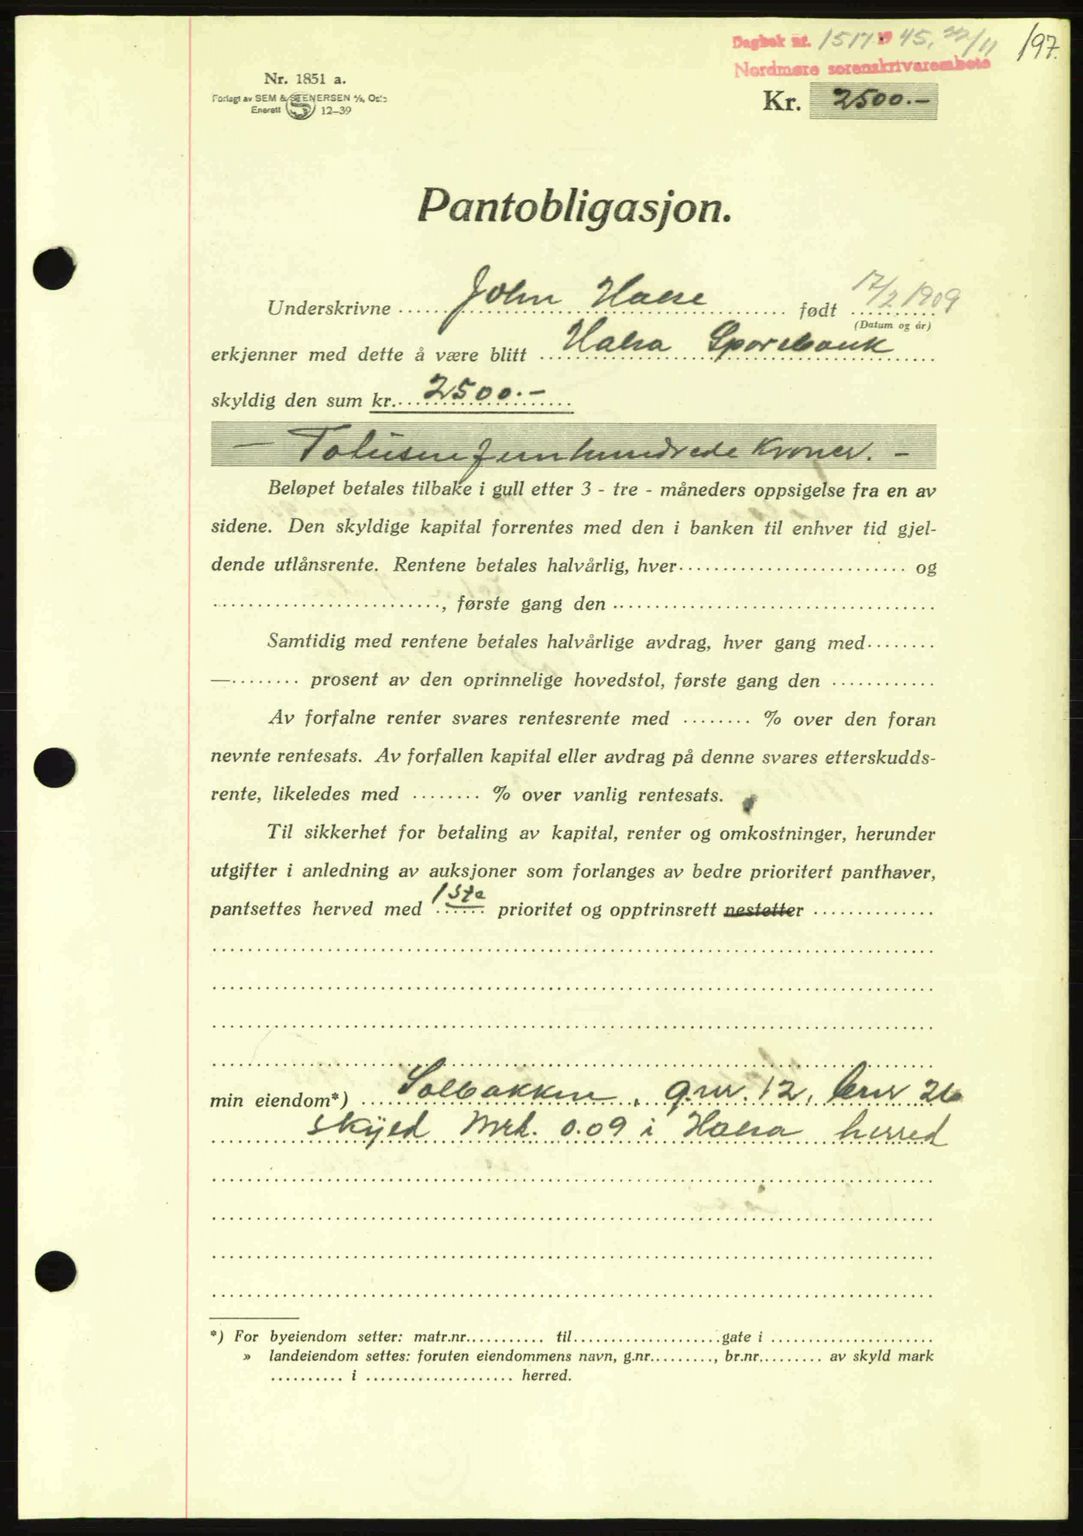 Dagbok nr. 1517 19 45, 22/11
197.
Nordmøre sorenskriverembete
Nr. 1851 a.
Forlagt av SEM & STENERSEN A/S, Oslo
Enerett 12-39
Kr. 2500.-
Pantobligasjon.
Underskrivne John Halse født 17/2 1909
(Datum og år)
erkjenner med dette å være blitt Halsa Sparebank
skyldig den sum kr. 2500.-
- Totusenfemhundrede kroner. -
Beløpet betales tilbake i gull etter 3 - tre - måneders oppsigelse fra en av
sidene. Den skyldige kapital forrentes med den i banken til enhver tid gjel-
dende utlånsrente. Rentene betales halvårlig, hver ........ og
........, første gang den ........
Samtidig med rentene betales halvårlige avdrag, hver gang med ........
—........ prosent av den oprinnelige hovedstol, første gang den ........
Av forfalne renter svares rentesrente med ........ % over den foran
nevnte rentesats. Av forfallen kapital eller avdrag på denne svares etterskudds-
rente, likeledes med ........ % over vanlig rentesats.
Til sikkerhet for betaling av kapital, renter og omkostninger, herunder
utgifter i anledning av auksjoner som forlanges av bedre prioritert panthaver,
pantsettes herved med 1ste prioritet og opptrinsrett nestetter ........
min eiendom*) Solbakken, g.nr. 12, bnr 26
skyld Mrk. 0.09 i Halsa herred
*) For byeiendom setter: matr.nr........ til........gate i ........
» landeiendom settes: foruten eiendommens navn, g.nr........, br.nr........ av skyld mark
........ i ........ herred.